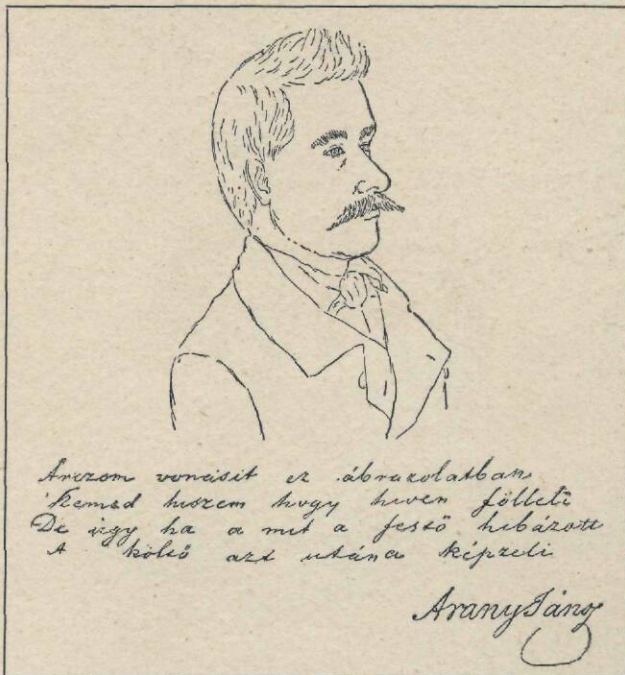 Arczom vonásit ez ábrázolatban
Remed hiszem hogy hiven fölleli
De úgy ha a mit a festő hibázott
A költő azt utána képzeli
Arany János